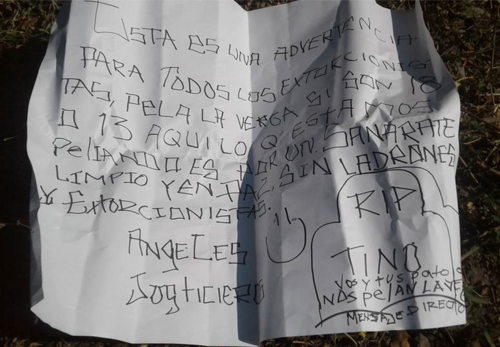 ESTA ES UNA ADVERTENCIA
PARA TODOS LOS EXTORCIONIS
TAS, PELA LA VERGA SI SON 18
O 13 AQUI LO Q ESTAMOS
PeLIANDO ES POR UN SANARATE
LIMPIO Y EN PAZ, SIN LADRONES
Y EXTORCIONISTAS.
ANGELES
JOSTICIERO
RIP
TINO
vos y tus patos
NOS PeLAN LA VE
MENSAJE DIRECTO